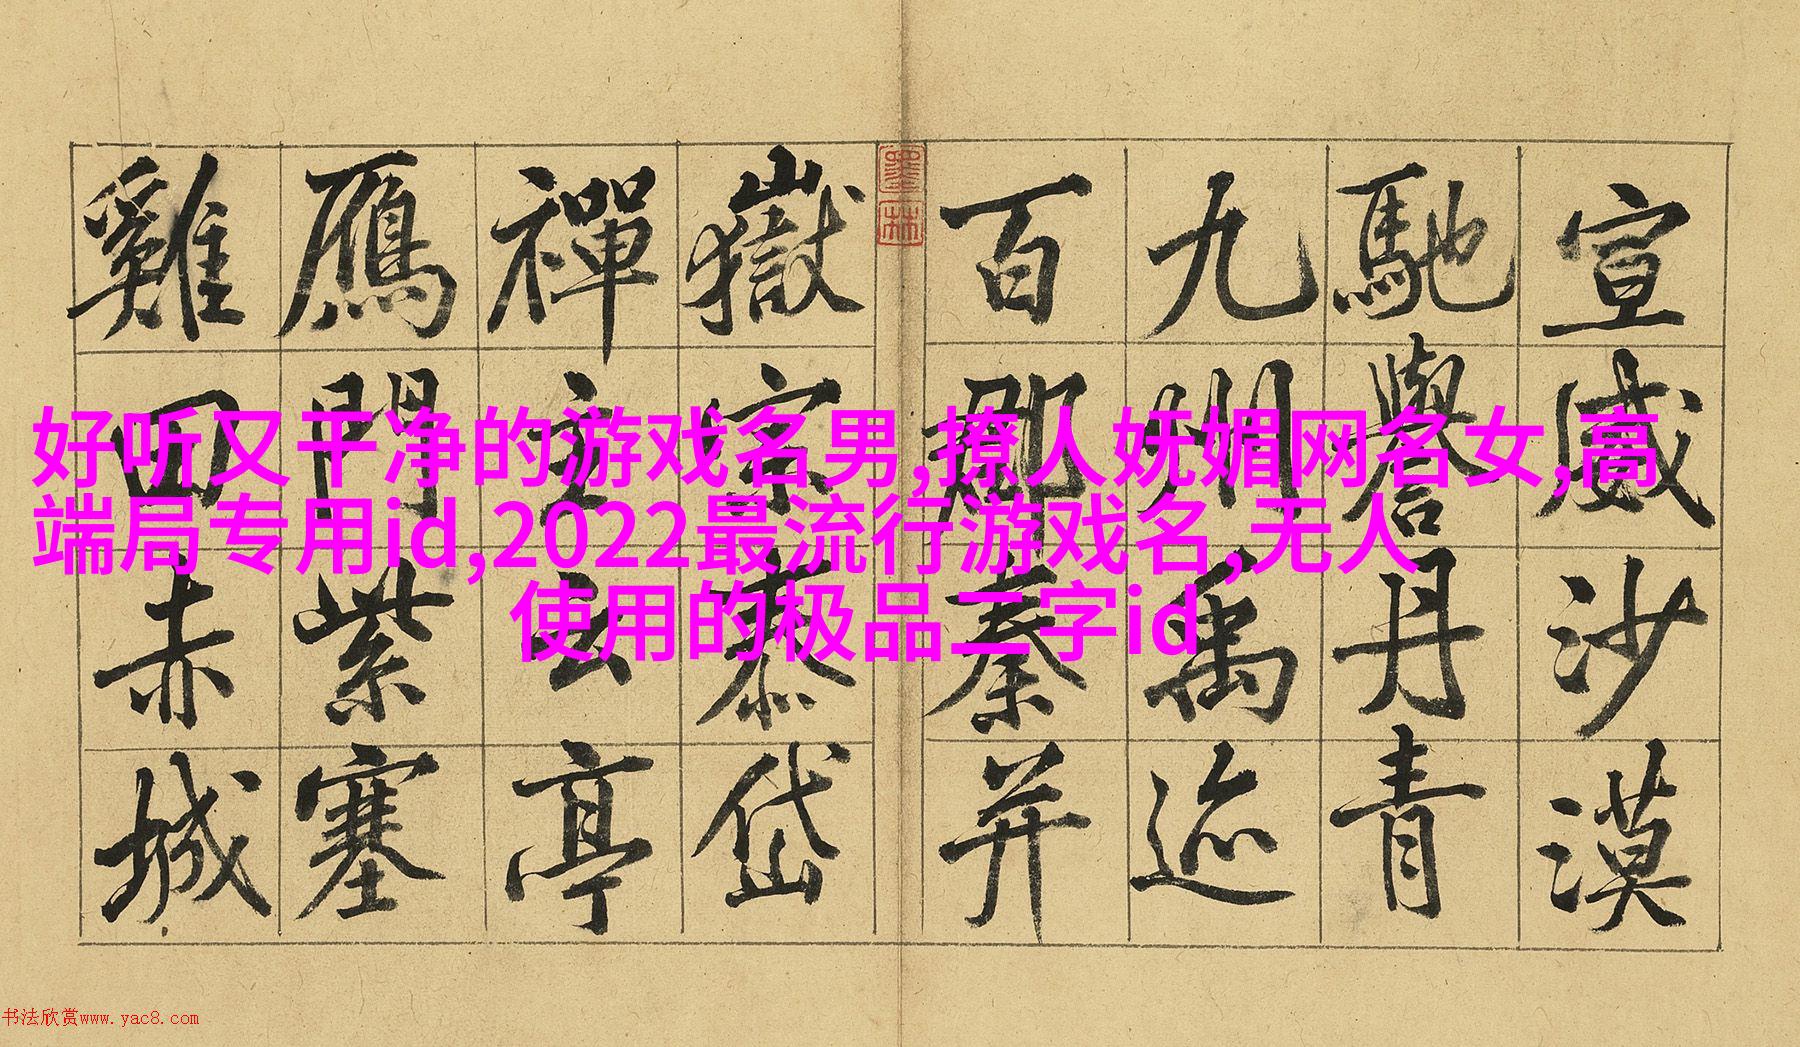 宣威沙漠
馳譽丹青
九州禹迹
百郡秦并
墨林
嶽宗泰岱
禪主云亭
鴈門紫塞
雞田赤城
好听又干净的游戏名男,撩人妩媚网名女,高
端局专用id,2022最流行游戏名,无人
使用的极品二字id
书法欣赏www.yac8.com